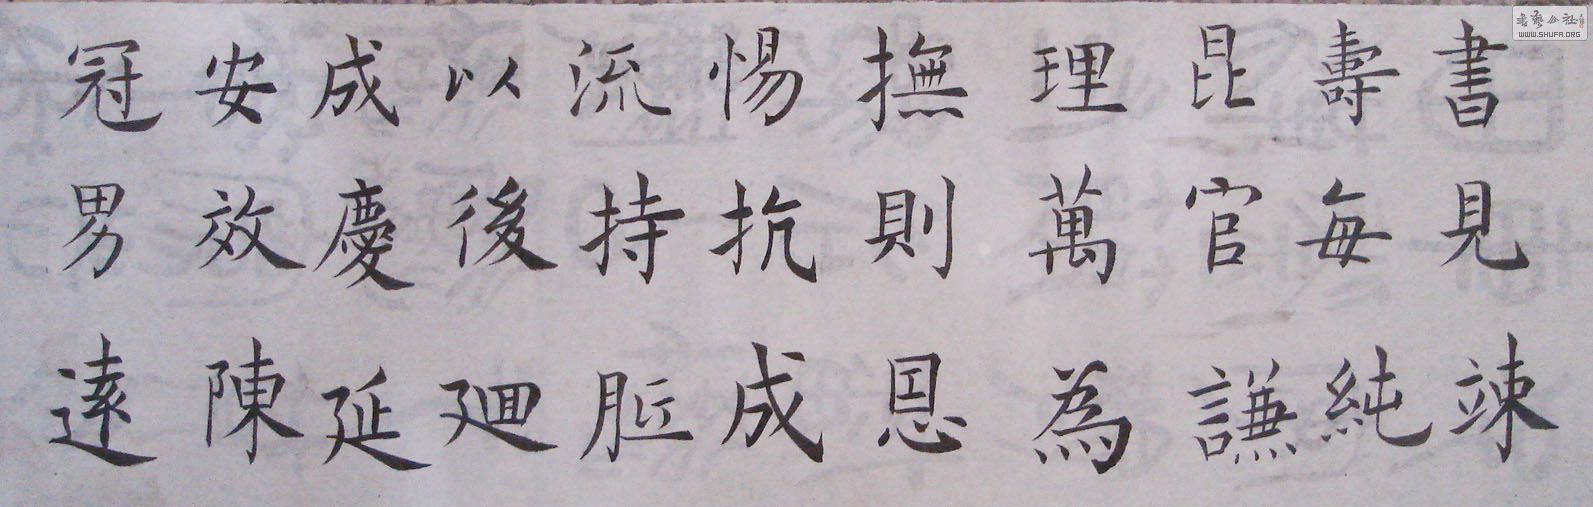 書見竦
壽每純
昆官謙
理萬為
撫則恩
惕抗成
流持
以後廻
成慶延
安效陳
冠男遠
書藝公社
WWW.SHUFA.ORG